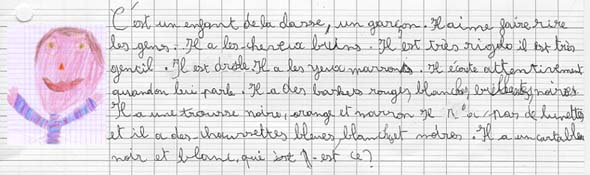 C'est un enfant de la classe, un garçon. Il aime faire rire
les gens. Il a les cheveux bruns. Il est très rigolo il est très
gentil. Il est drôle. Il a les yeux marrons. Il écoute attentivement
quand on lui parle. Il a des baskets rouges, blanches, noires.
Il a une trousse noire, orange et marron. Il n'a pas de lunettes
et il a des chaussettes bleues, blanches et noires. Il a un cartable
noir et blanc, qui est-ce?